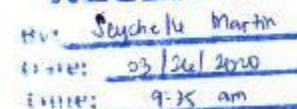 By: Seychelle Martin
Date: 03/26/2020
Time: 9:35 am